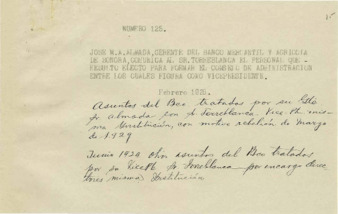 NUMERO 125.
JOSE M.A. ALMADA, GERENTE DEL BANCO MERCANTIL Y AGRICOLA
DE SONORA, COMUNICA AL SR. TORREBLANCA EL PERSONAL QUE
RESULTO ELECTO PARA FORMAR EL CONSEJO DE ADMINISTRACION
ENTRE LOS CUALES FIGURA COMO VICEPRESIDENTE.
Febrero 1928.
Asuntos del Bco tratados por su Gte
Sr Almada con Sr Torreblanca. Vice Pte. mis-
ma Institución, con motivo rebelión de Marzo
de 1929
Junio 1929 Otros asuntos del Bco tratados
por su VicePte Sr Torreblanca por encargo direc
tores misma Institución